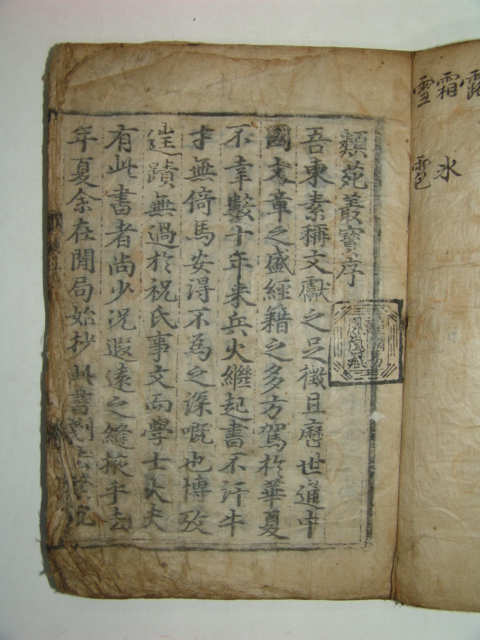 露
霜 氷
雪 雹
類苑叢寶序
吾東素稱文獻之足徵且歷世通中
國文章之盛經籍之多方駕於華夏
不幸數十年來兵火繼起書不汗牛
才無倚馬安得不爲之深嘅也博攷
徃蹟無過於祝氏事文而學士大夫
有此書者尚少況遐遠之縫掖乎去
年夏余在閒局始抄此書刪去